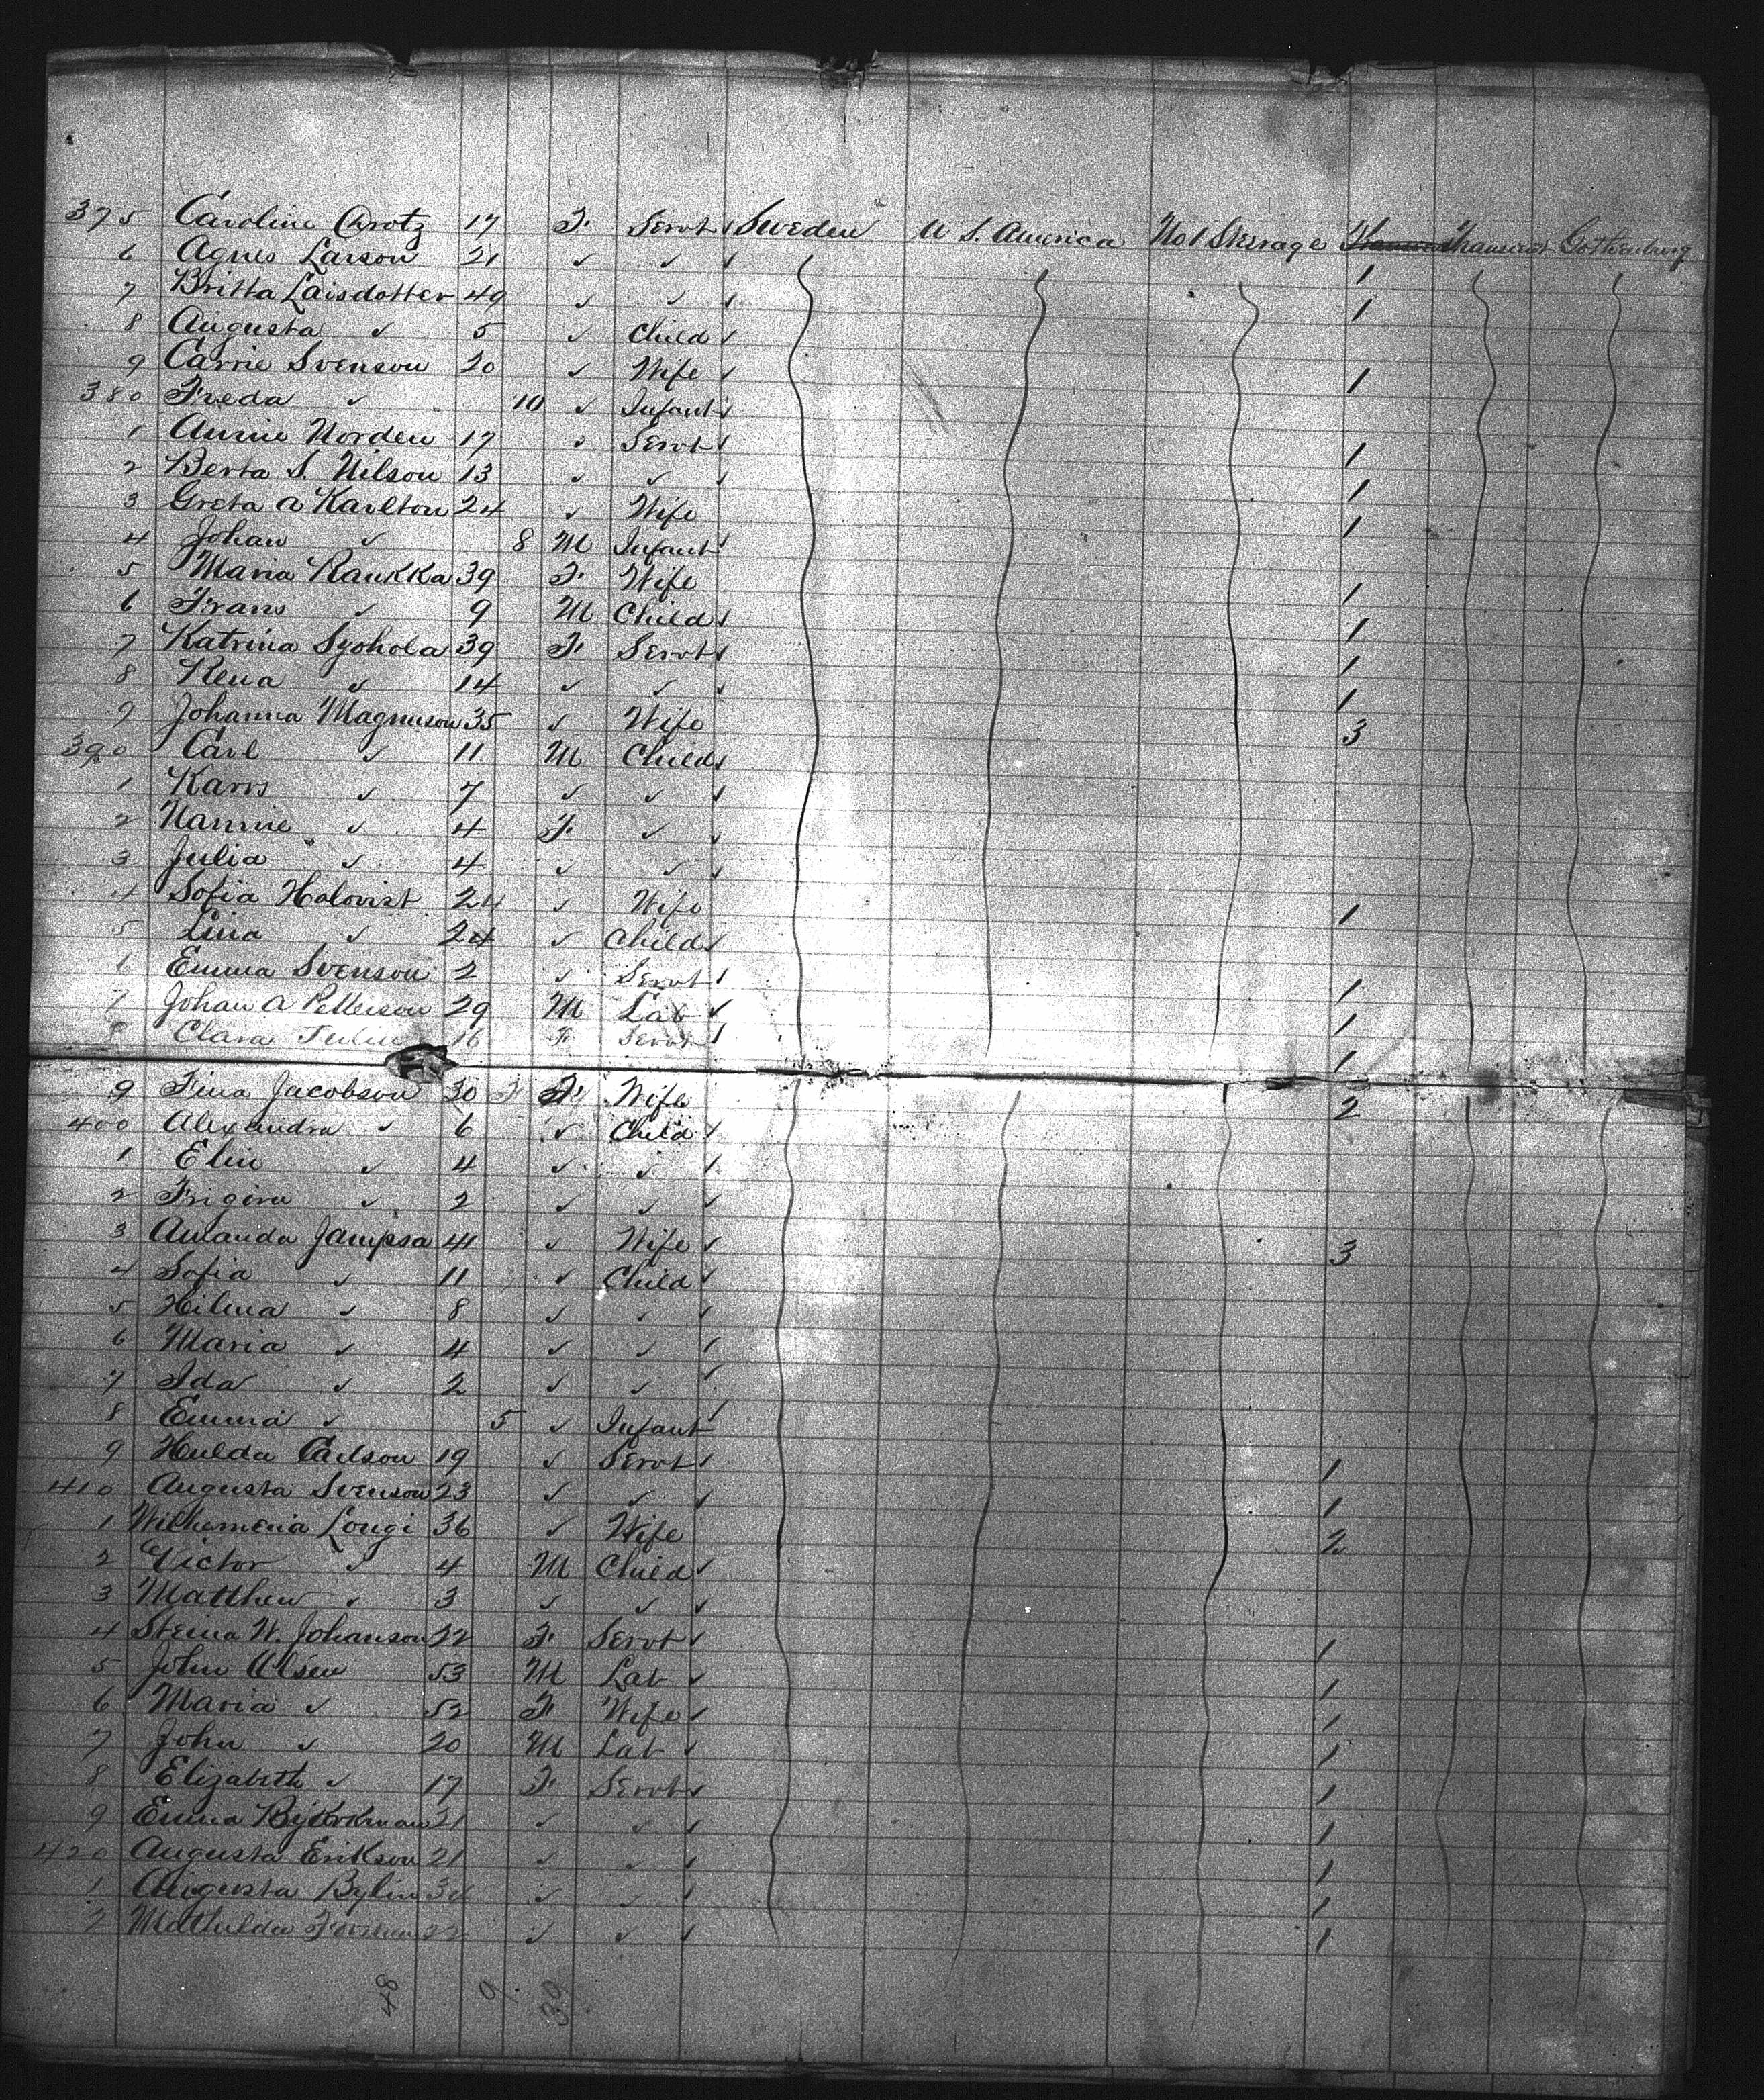 375 Caroline Crotz 17 F. Servt ✓ Sweden U S. America No 1 Steerage Transient Gothenburg
6 Agnes Larson 21 ✓ ✓ ✓ 1
7 Britta Laisdotter 49 ✓ ✓ ✓ 1
8 Augusta ✓ 5 ✓ Child ✓
9 Carrie Svenson 20 ✓ Wife ✓ 1
380 Freda ✓ 10 ✓ Infant ✓
1 Annie Norden 17 ✓ Servt ✓ 1
2 Berta S. Nilson 13 ✓ ✓ ✓ 1
3 Greta A Karlton 24 ✓ Wife 1
4 Johan ✓ 8 M Infant ✓
5 Maria Raukka 39 F. Wife 1
6 Frans ✓ 9 M Child ✓ 1
7 Katrina Syohola 39 F. Servt ✓ 1
8 Rena ✓ 14 ✓ ✓ ✓ 1
9 Johanna Magnuson 35 ✓ Wife 3
390 Carl ✓ 11 M Child ✓
1 Karrs ✓ 7 ✓ ✓ ✓
2 Nannie ✓ 4 F. ✓ ✓
3 Julia ✓ 4 ✓ ✓ ✓
4 Sofia Holqvist 24 ✓ Wife 1
5 Lina ✓ 24 ✓ Child ✓
6 Emma Svenson 2 ✓ Servt ✓ 1
7 Johan A Petterson 29 M Lab ✓ 1
8 Clara 16 F. Servt ✓ 1
9 Fina Jacobson 30 F. Wife 2
400 Alexandra ✓ 6 ✓ Child ✓
1 Elin ✓ 4 ✓ ✓ ✓
2 Frigera ✓ 2 ✓ ✓ ✓
3 Amanda Jampsa 41 ✓ Wife ✓ 3
4 Sofia ✓ 11 ✓ Child ✓
5 Hilma ✓ 8 ✓ ✓ ✓
6 Maria ✓ 4 ✓ ✓ ✓
7 Ida ✓ 2 ✓ ✓ ✓
8 Emma ✓ 5 ✓ Infant ✓
9 Hulda Carlson 19 ✓ Servt ✓ 1
410 Augusta Svenson 23 ✓ ✓ ✓ 1
1 Wilhemenia Longi 36 ✓ Wife 2
2 Victor ✓ 4 M Child ✓
3 Matthew ✓ 3 ✓ ✓ ✓
4 Steina W. Johanson 22 F. Servt ✓ 1
5 John Olsen 53 M Lab ✓ 1
6 Maria ✓ 52 F. Wife ✓ 1
7 John ✓ 20 M Lab ✓ 1
8 Elizabeth ✓ 17 F. Servt ✓ 1
9 Emma Bjorkman 21 ✓ ✓ ✓ 1
420 Augusta Erikson 21 ✓ ✓ ✓ 1
1 Augusta Bylin ✓ ✓ ✓ 1
2 Mathilda 22 ✓ ✓ ✓ 1
48 9. 39